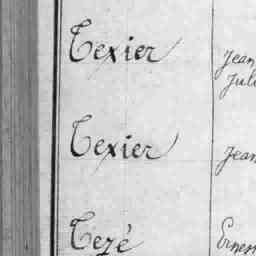 Texier Jean
Juli
Texier Jean
Tezé Ernes